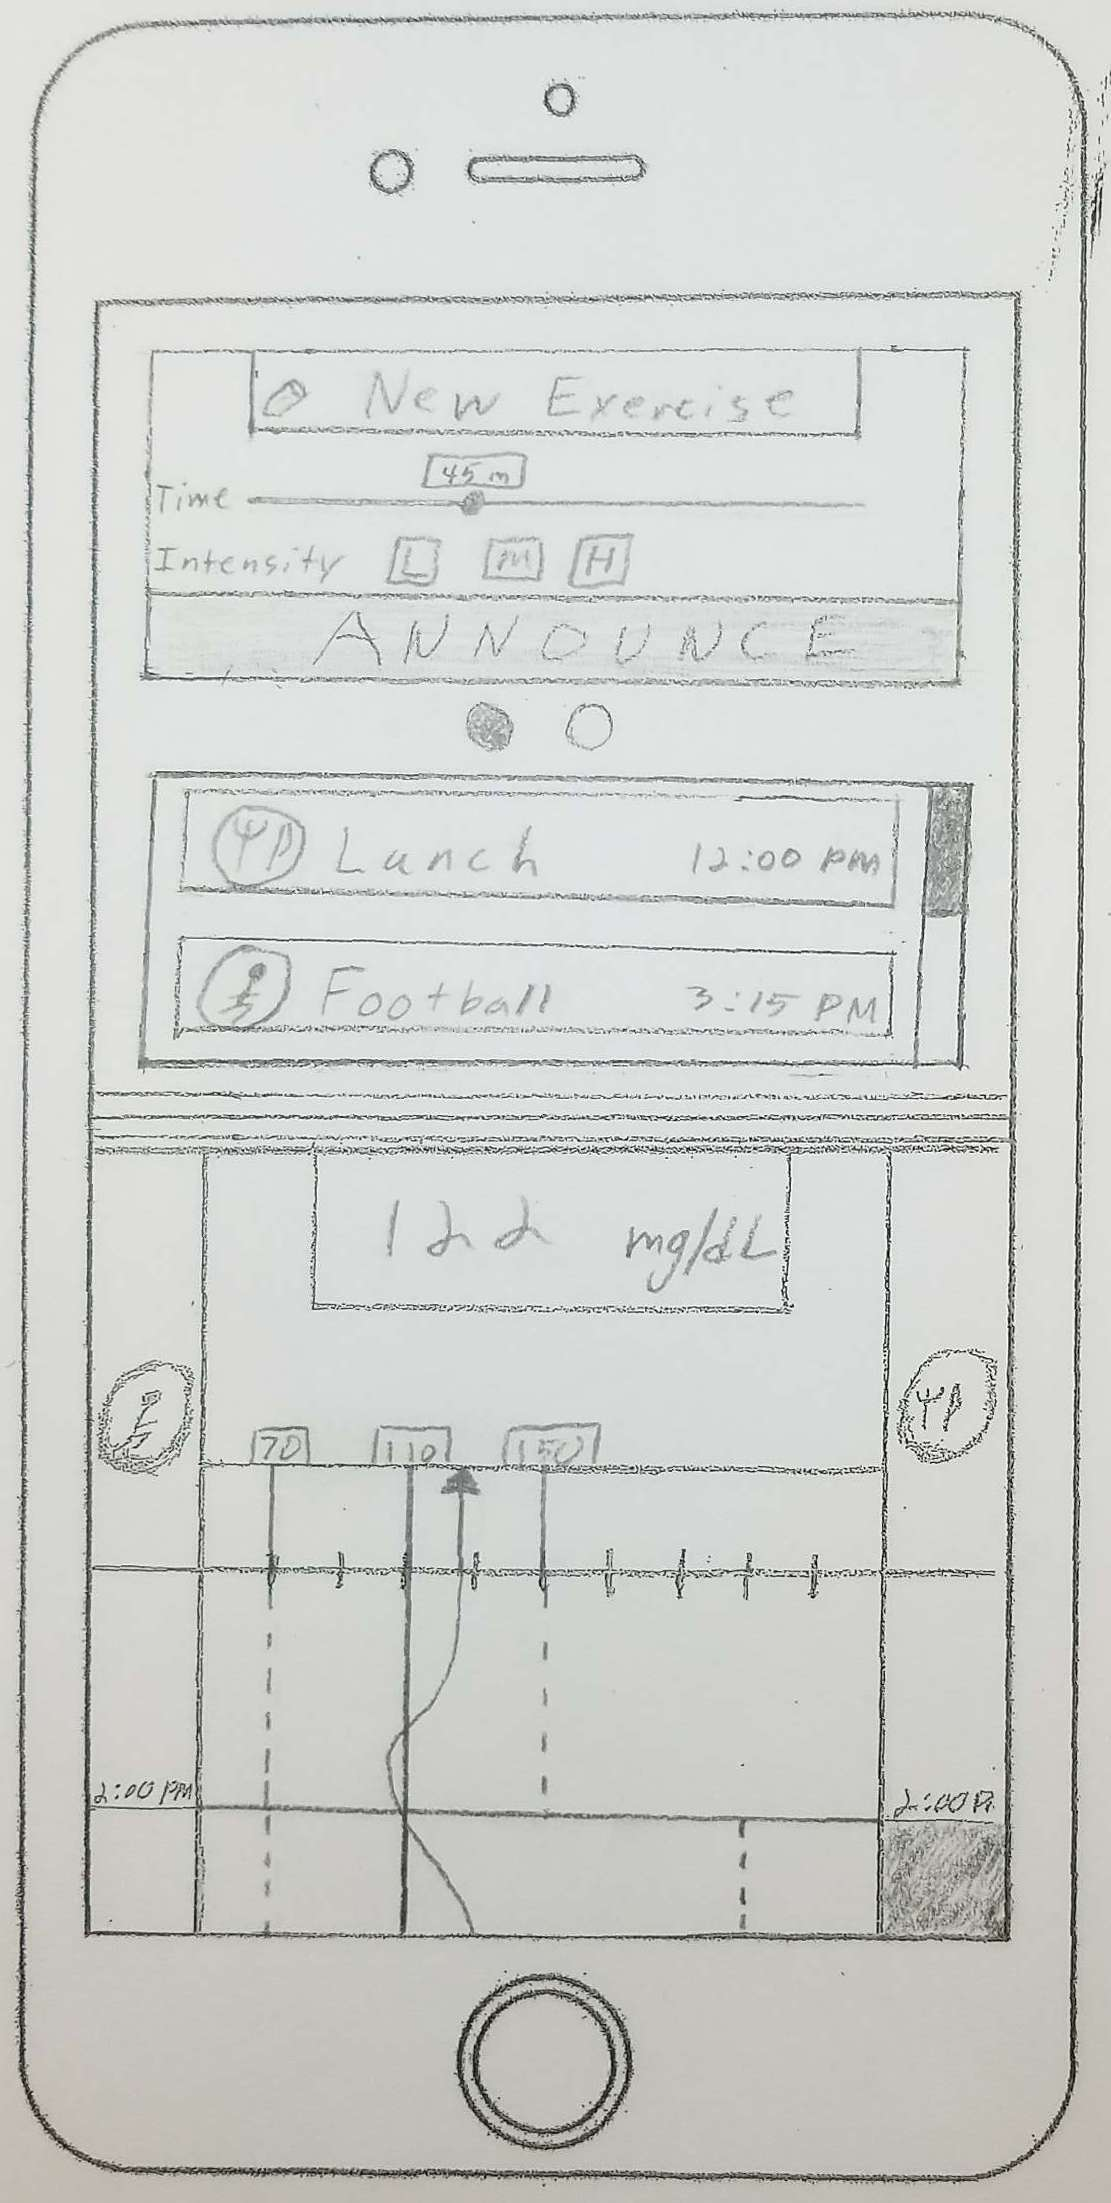 New Exercise
45 m
Time
Intensity L M H
ANNOUNCE
Lunch 12:00 PM
Football 3:15 PM
122 mg/dL
70 110 150
2:00 PM 2:00 P